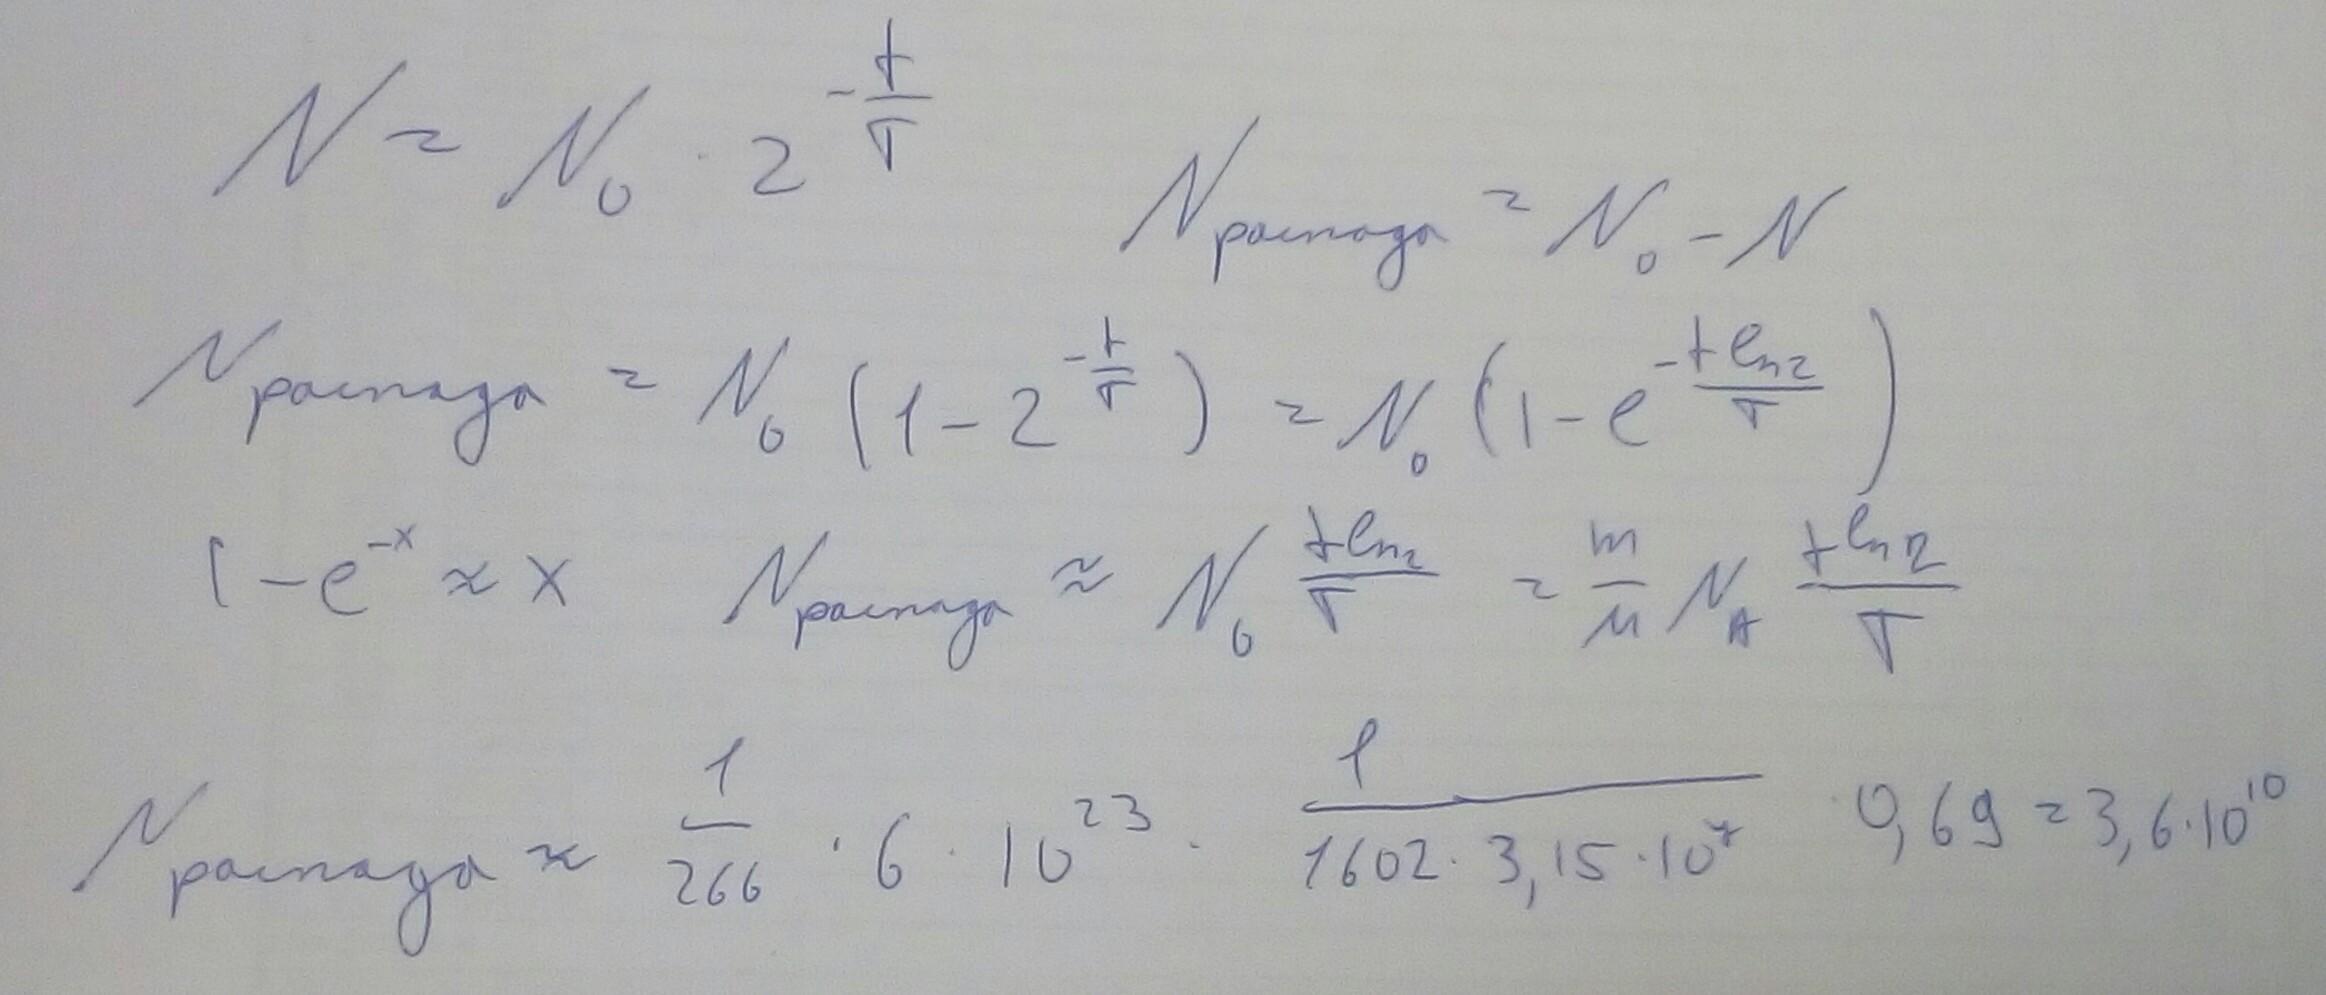 N = N₀ · 2^(-t/T)
Nраспада = N₀ - N
Nраспада = N₀ (1 - 2^(-t/T)) = N₀ (1 - e^(-t ln2/T))
1 - e^(-x) ≈ x Nраспада ≈ N₀ t ln2/T = m/M N_A t ln2/T
Nраспада ≈ 1/266 · 6 · 10²³ · 1/(1602 · 3,15 · 10⁷) · 0,69 = 3,6 · 10¹⁰